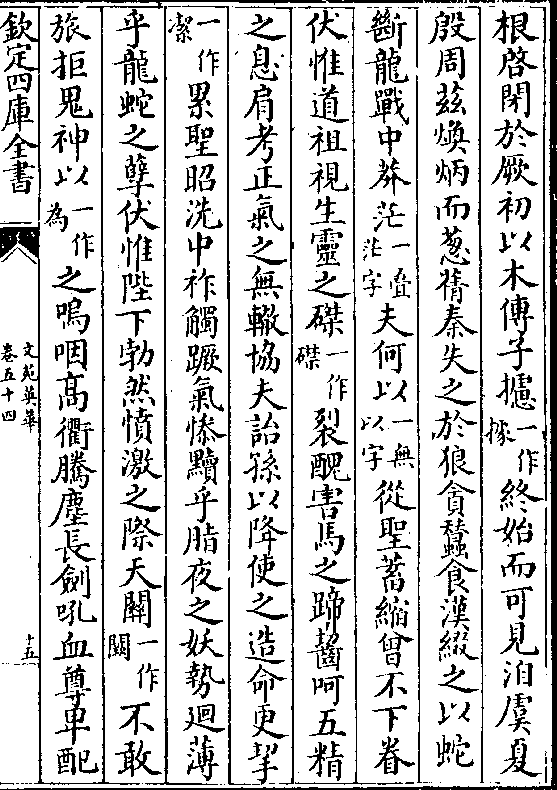 根啓閉於厥初以木傳子攄一作據終始而可見洎虞夏
殷周茲煥炳而葱蒨秦失之於狼貪蠶食漢綴之以蛇
斷龍戰中莽茫一疊茫字夫何以一無以字從聖蓄縮曾不下眷
伏惟道祖視生靈之磔一作磔裂醜害馬之蹄齧呵五精
之息肩考正氣之無轍協夫詒孫以降使之造命更挈
一作潔累聖昭洗中祚觸蹶氣慘黷乎脂夜之妖勢廻薄
乎龍蛇之孽伏惟陛下勃然憤激之際天闕一作闕不敢
旅拒鬼神以一作為之嗚咽高衢騰塵長劍吼血尊卑配
欽定四庫全書
文苑英華
卷五十四
十五